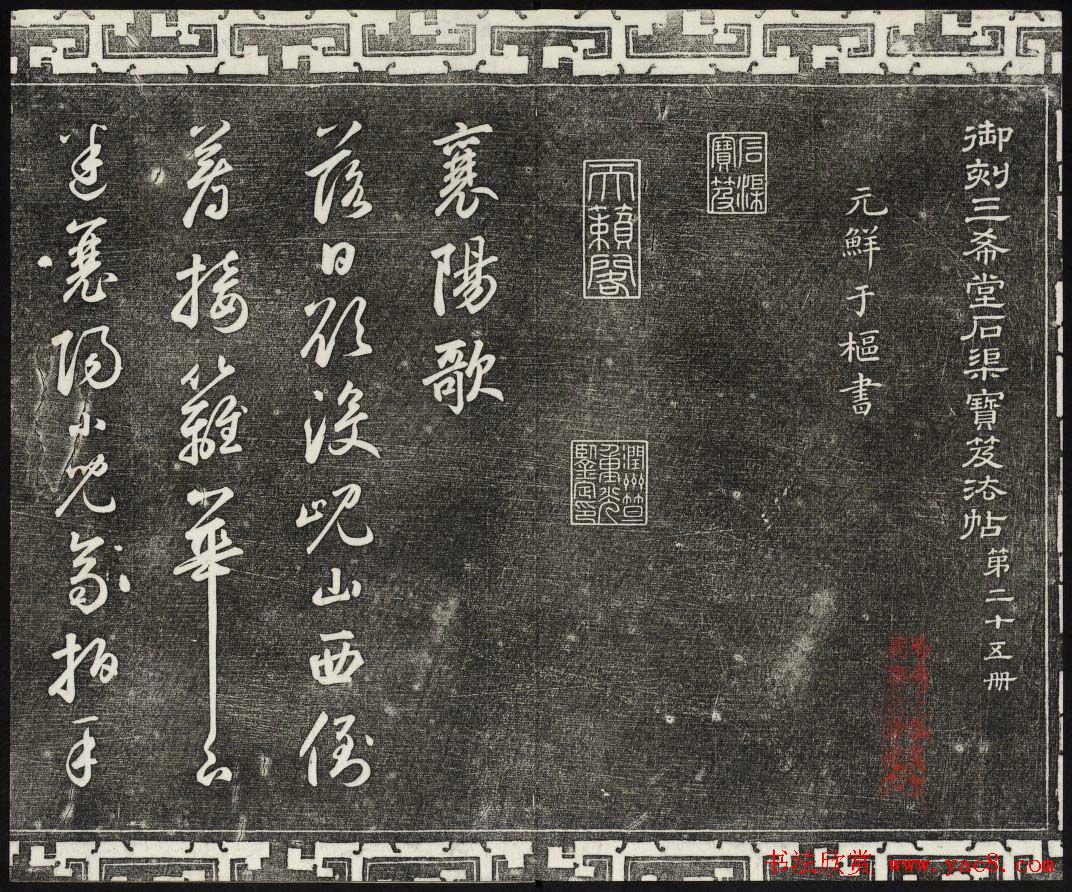 御刻三希堂石渠寶笈法帖 第二十五冊
元鮮于樞書
石渠寶笈
天籟閣
潤州笪重光鑒定印
襄陽歌
落日欲没峴山西倒
着接籬華下
迷襄陽小兒齊拍手
书法欣赏 www.yac8.com